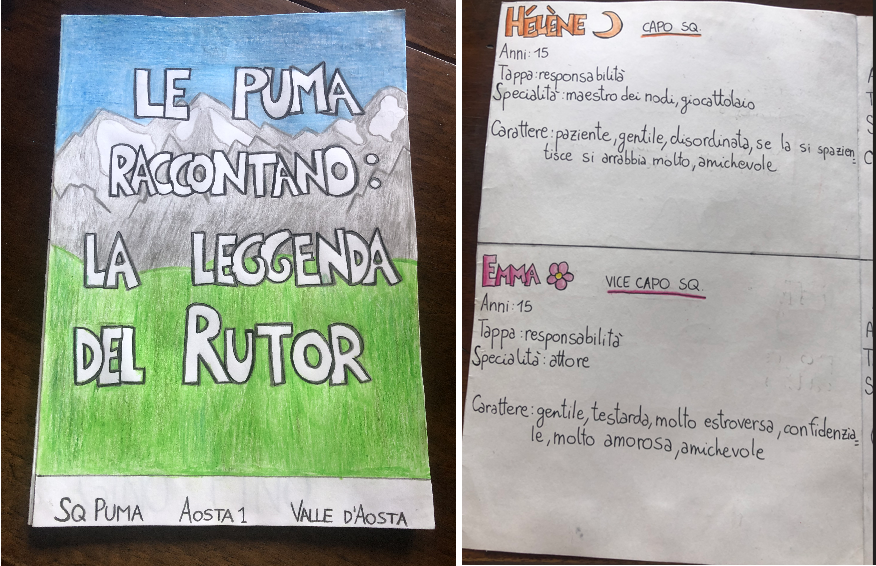 LE PUMA
RACCONTANO:
LA LEGGENDA
DEL RUTOR
SQ PUMA AOSTA 1 VALLE D'AOSTA
HÉLÈNE CAPO SQ.
Anni: 15
Tappa: responsabilità
Specialità: maestro dei nodi, giocattolaio
Carattere: paziente, gentile, disordinata, se la si spazien=
tisce si arrabbia molto, amichevole
EMMA VICE CAPO SQ.
Anni: 15
Tappa: responsabilità
Specialità: attore
Carattere: gentile, testarda, molto estroversa, confidenzia=
le, molto amorosa, amichevole